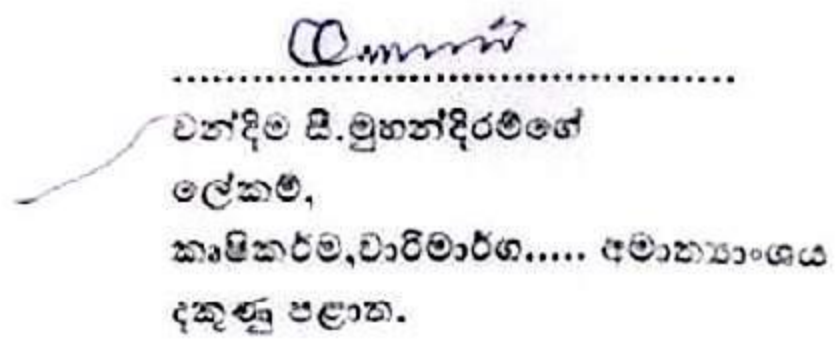 චන්දිම සී.මුහන්දිරම්ගේ
ලේකම්,
කෘෂිකර්ම,වාරිමාර්ග..... අමාත්‍යාංශය
දකුණු පළාත.